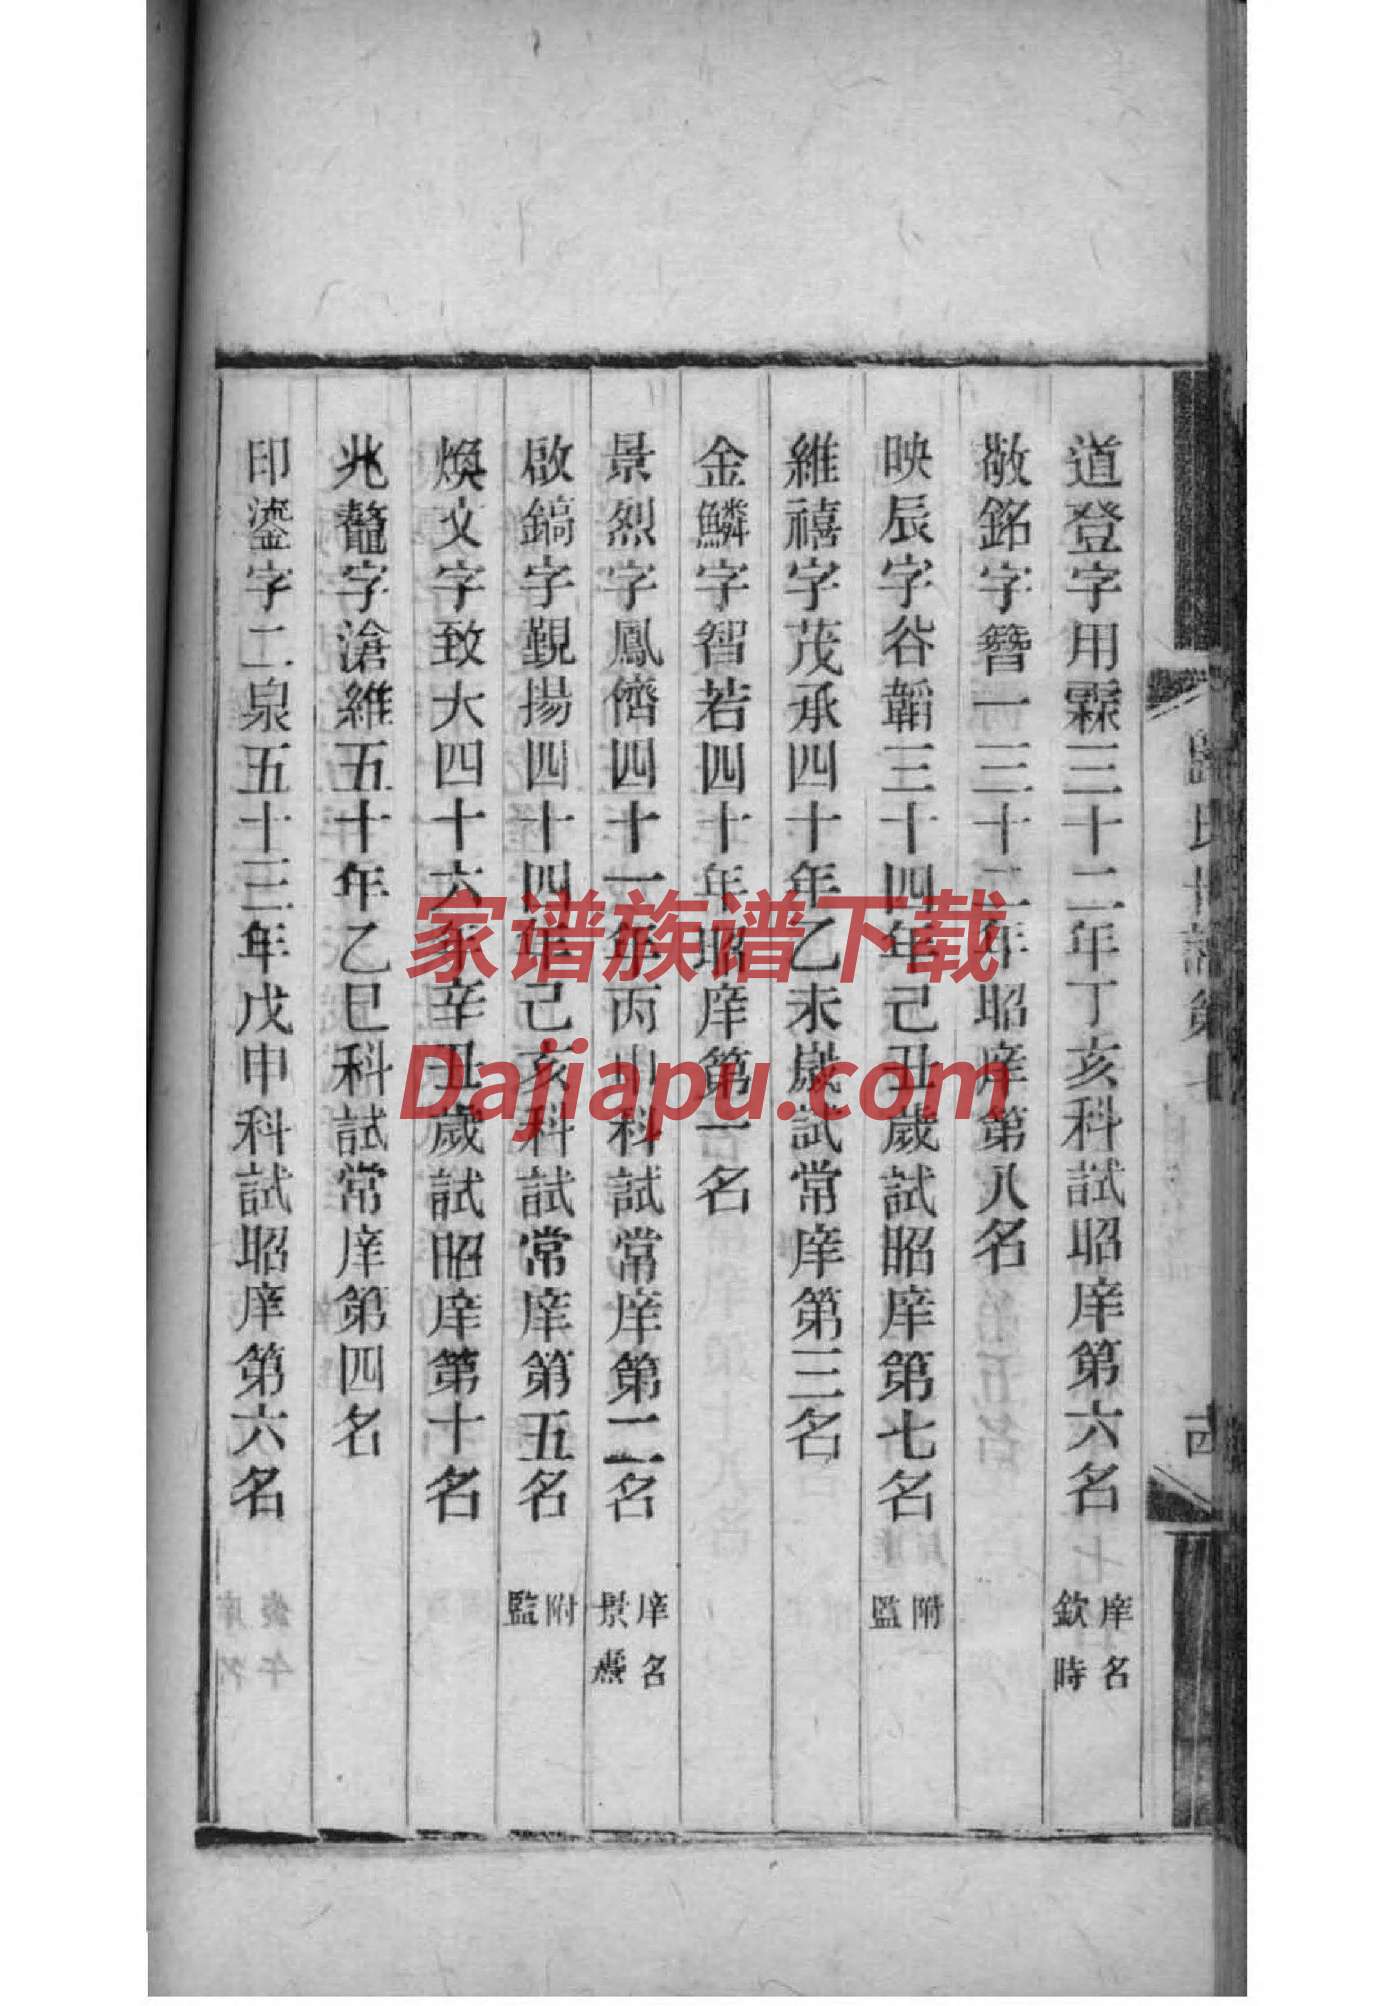 道登字用霖三十二年丁亥科試昭庠第六名 庠名欽時
敬銘字簪一三十二年昭庠第八名
映辰字谷韜三十四年己丑歲試昭庠第七名 附監
維禧字茂承四十年乙未歲試常庠第三名
金鱗字智若四十年昭庠第一名
景烈字鳳儕四十一年丙申科試常庠第二名 庠名景燾
啟鎬字覲揚四十四年己亥科試常庠第五名 附監
煥文字致大四十六年辛丑歲試昭庠第十名
兆鼇字滄維五十年乙巳科試常庠第四名
印鎏字二泉五十三年戊申科試昭庠第六名
家谱族谱下载
Dajiapu.com